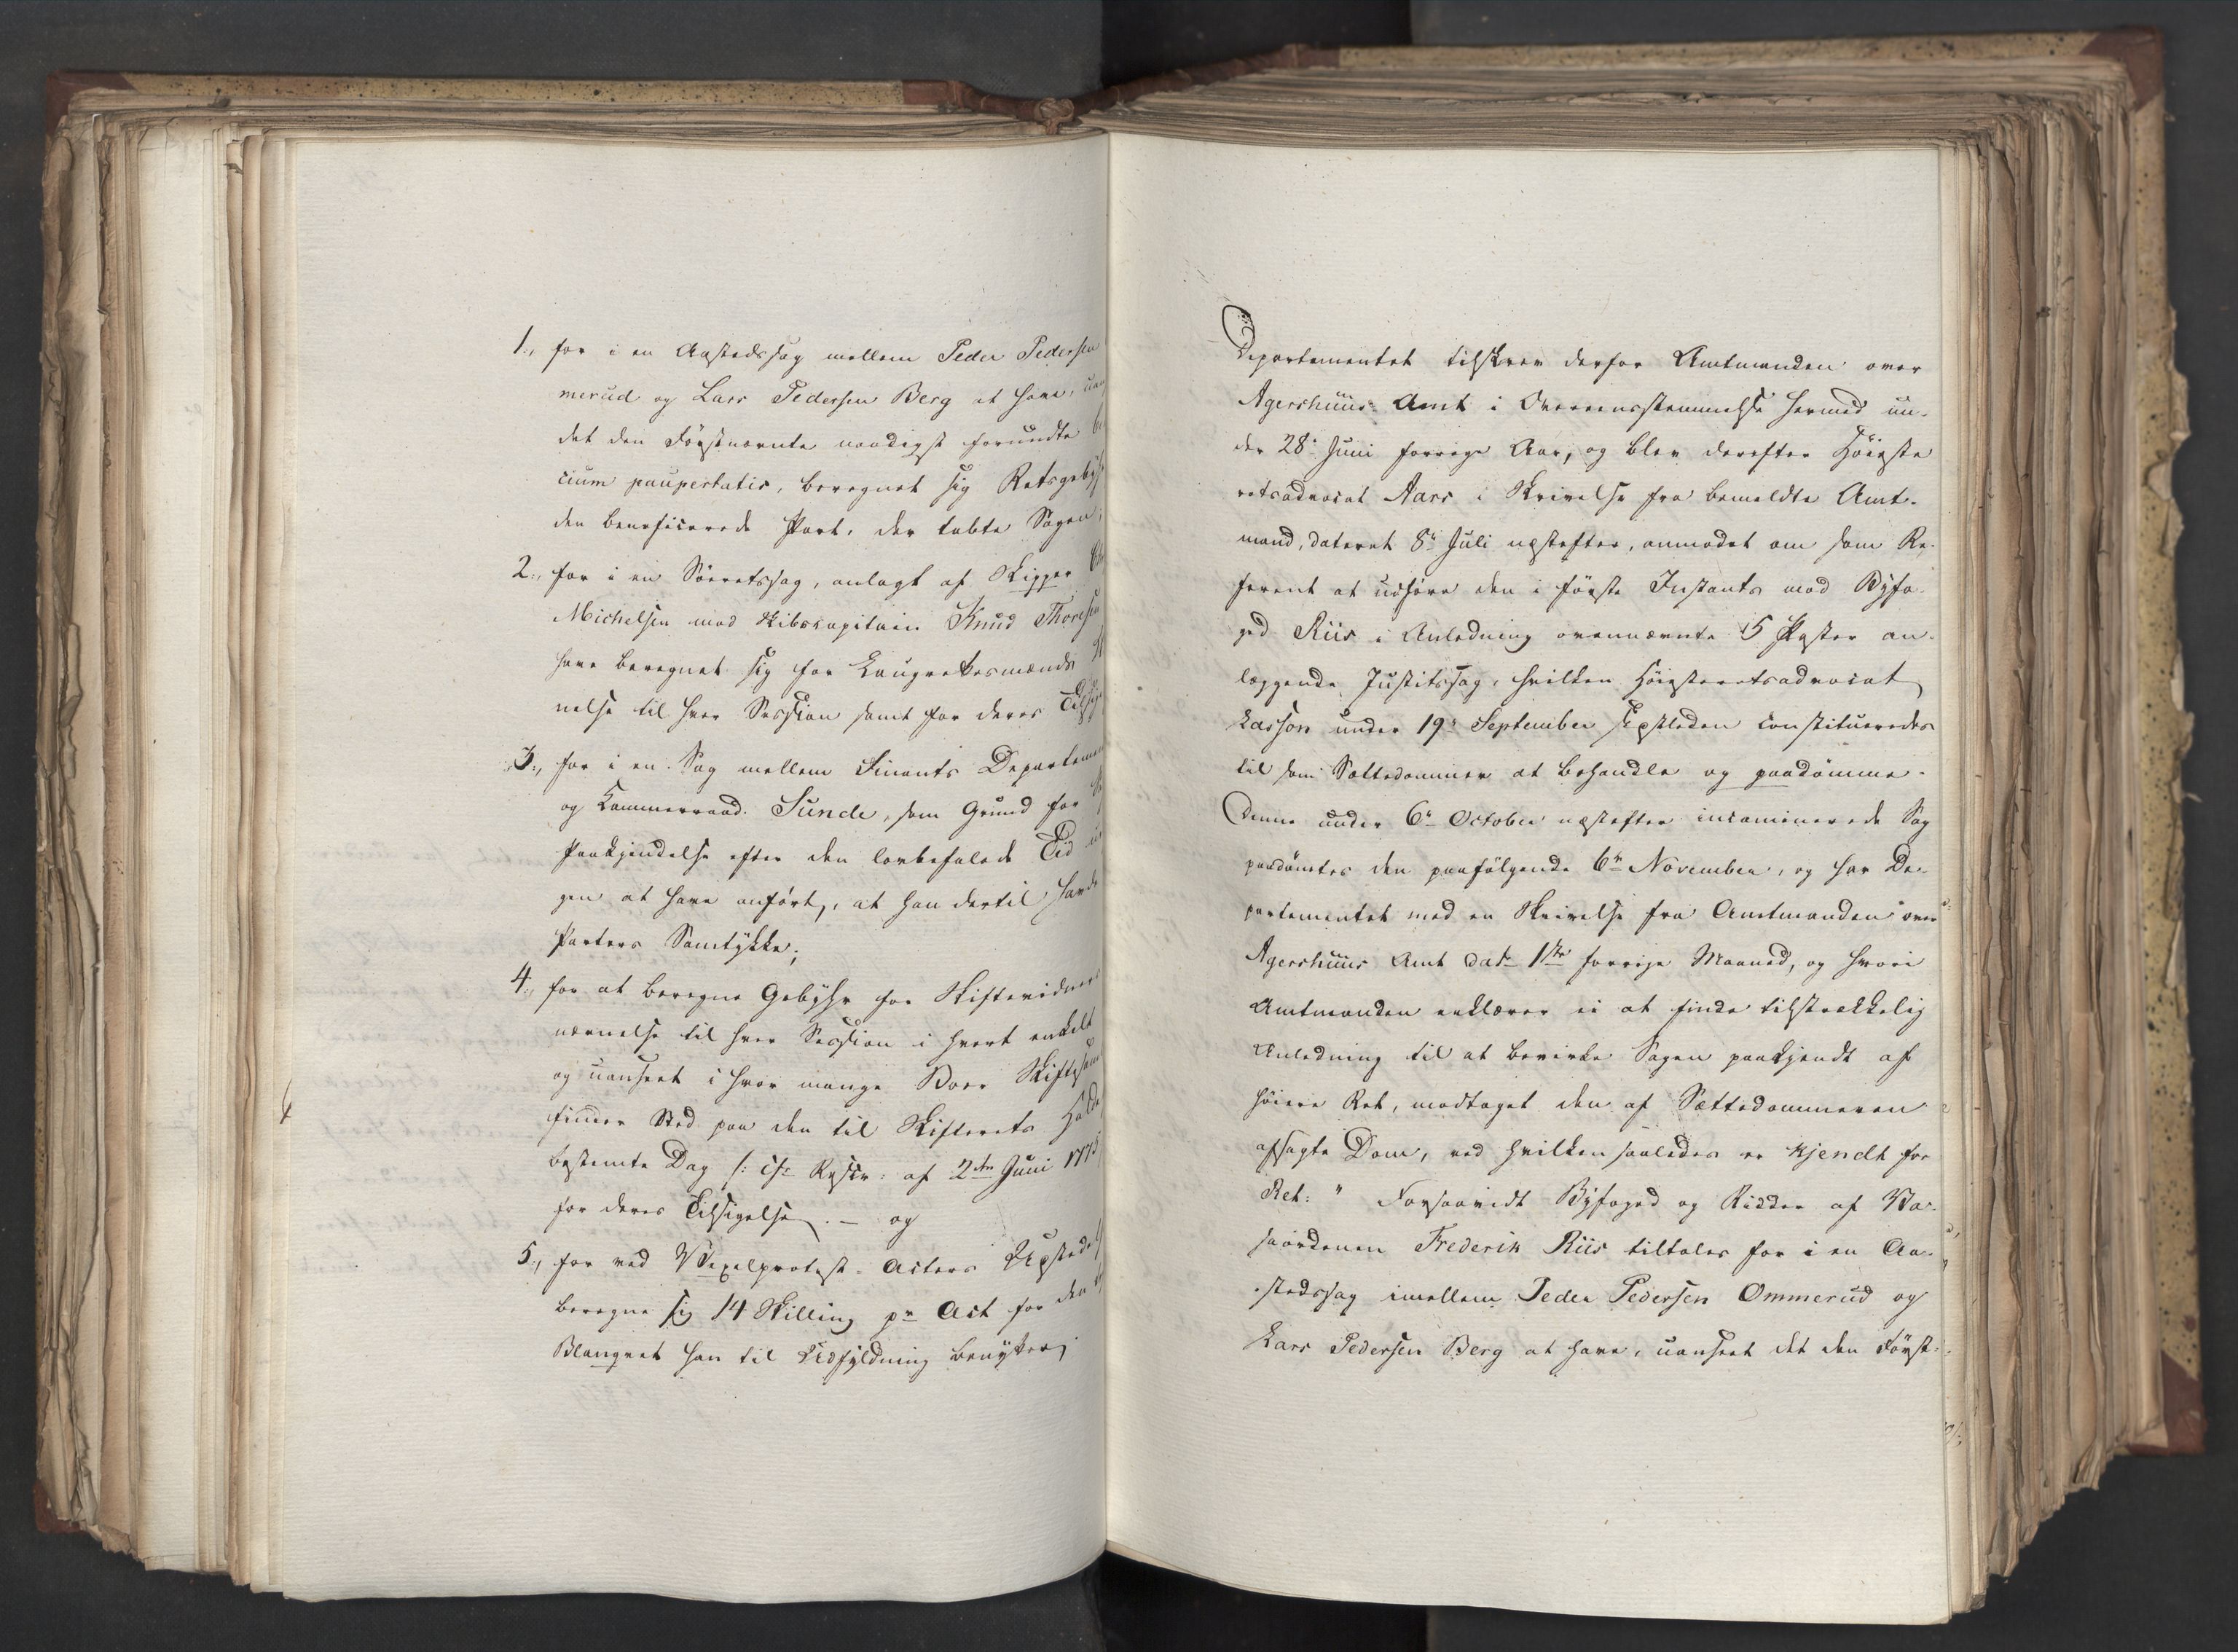 1., for i en Aastedssag mellem Peder Pedersen
merud og Lars Pedersen Berg at have, uan
det den Förstnævnte naadigst forundte be
cium paupertatis, beregnet sig Retsgebyh
den beneficerede Part, der tabte Sagen;
2., for i en Söeretssag, anlagt af Skipper
Michelsen mod Skibscapitain Knud Thoresen
have beregnet sig for Laugrettesmænds
nelse til hver Session samt for deres Tilsige
3., for i en Sag mellem Finants Departemen
og Kammerraad Sunde, som Grund for
Paakjendelse efter den lovbefalede Tid
gen at have anfört, at han dertil havde
Parters Samtykke;
4., for at beregne Gebyhr for Skiftevidners
nævnelse til hver Session i hvert enkelt
og uanseet i hvor mange Boer Skiftesam
finder Sted paa den til Skifterets Holde
bestemte Dag /: cfr Rescr: af 2den Juni 1775
for deres Tilsigelse. — og
5., for ved Vexelprotest-Acters Udstedels
beregne sig 14 Skilling pr Act for den
Blanquet han til Udfyldning benytter;
Departementet tilskrev derfor Amtmanden over
Agershuus Amt i Overeensstemmelse hermed un-
der 28de Juni forrige Aar, og blev derefter Höieste
retsadvocat Aars i Skrivelse fra bemeldte Amt-
mand, dateret 8de Juli næstefter, anmodet om som Re-
ferent at udföre den i förste Instants mod Byfo-
ged Riis i Anledning ovennævnte 5 Poster an-
læggende Justitssag, hvilken Höiesteretsadvocat
Lasson under 19de September sidstleden constitueredes
til som Sættedommer at behandle og paadömme.
Denne under 6te October næstefter incaminerede Sag
paadömtes den paafölgende 6te November, og har De-
partementet med en Skrivelse fra Amtmanden over
Agershuus Amt dat 1ste forrige Maaned, og hvori
Amtmanden erklærer ei at finde tilstrækkelig
Anledning til at bevirke Sagen paakjendt af
höiere Ret, modtaget den af Sættedommeren
afsagte Dom, ved hvilken saaledes er kjendt for
Ret: " Forsaavidt Byfoged og Ridder af Wa-
saordenen Frederik Riis tiltales for i en Aa-
stedssag imellem Peder Pedersen Ommerud og
Lars Pedersen Berg at have, uanseet det den Först-